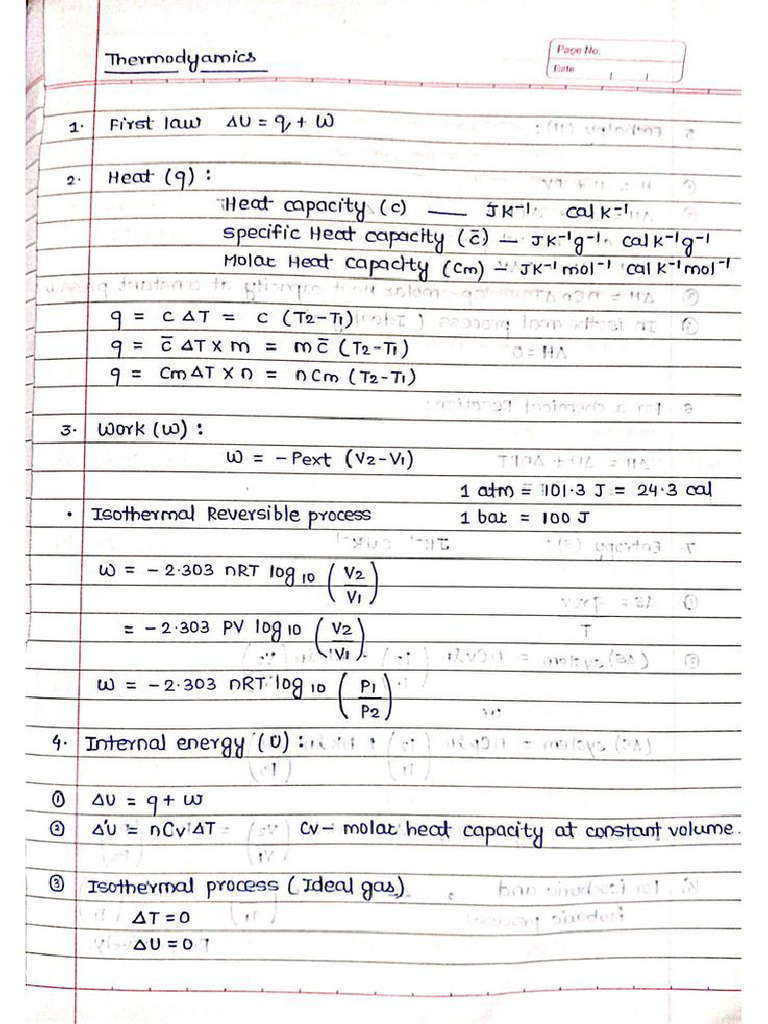 Thermodyamics
Page No.
Date
1. First law ΔU = q + W
2. Heat (q) :
Heat capacity (c) — JK⁻¹ cal K⁻¹
Specific Heat capacity (c̄) — JK⁻¹g⁻¹ cal K⁻¹g⁻¹
Molar Heat capacity (Cm) — JK⁻¹mol⁻¹ cal K⁻¹mol⁻¹
q = C ΔT = C (T2-T1)
q = c̄ ΔT x m = mc̄ (T2-T1)
q = Cm ΔT x n = nCm (T2-T1)
3. Work (w) :
W = - Pext (V2-V1)
1 atm = 101.3 J = 24.3 cal
• Isothermal Reversible process 1 bat = 100 J
W = - 2.303 nRT log10 (V2/V1)
= - 2.303 PV log10 (V2/V1)
W = - 2.303 nRT log10 (P1/P2)
4. Internal energy (U) :
① ΔU = q + W
② ΔU = nCv ΔT Cv - molar heat capacity at constant volume.
③ Isothermal process (Ideal gas)
ΔT = 0
ΔU = 0